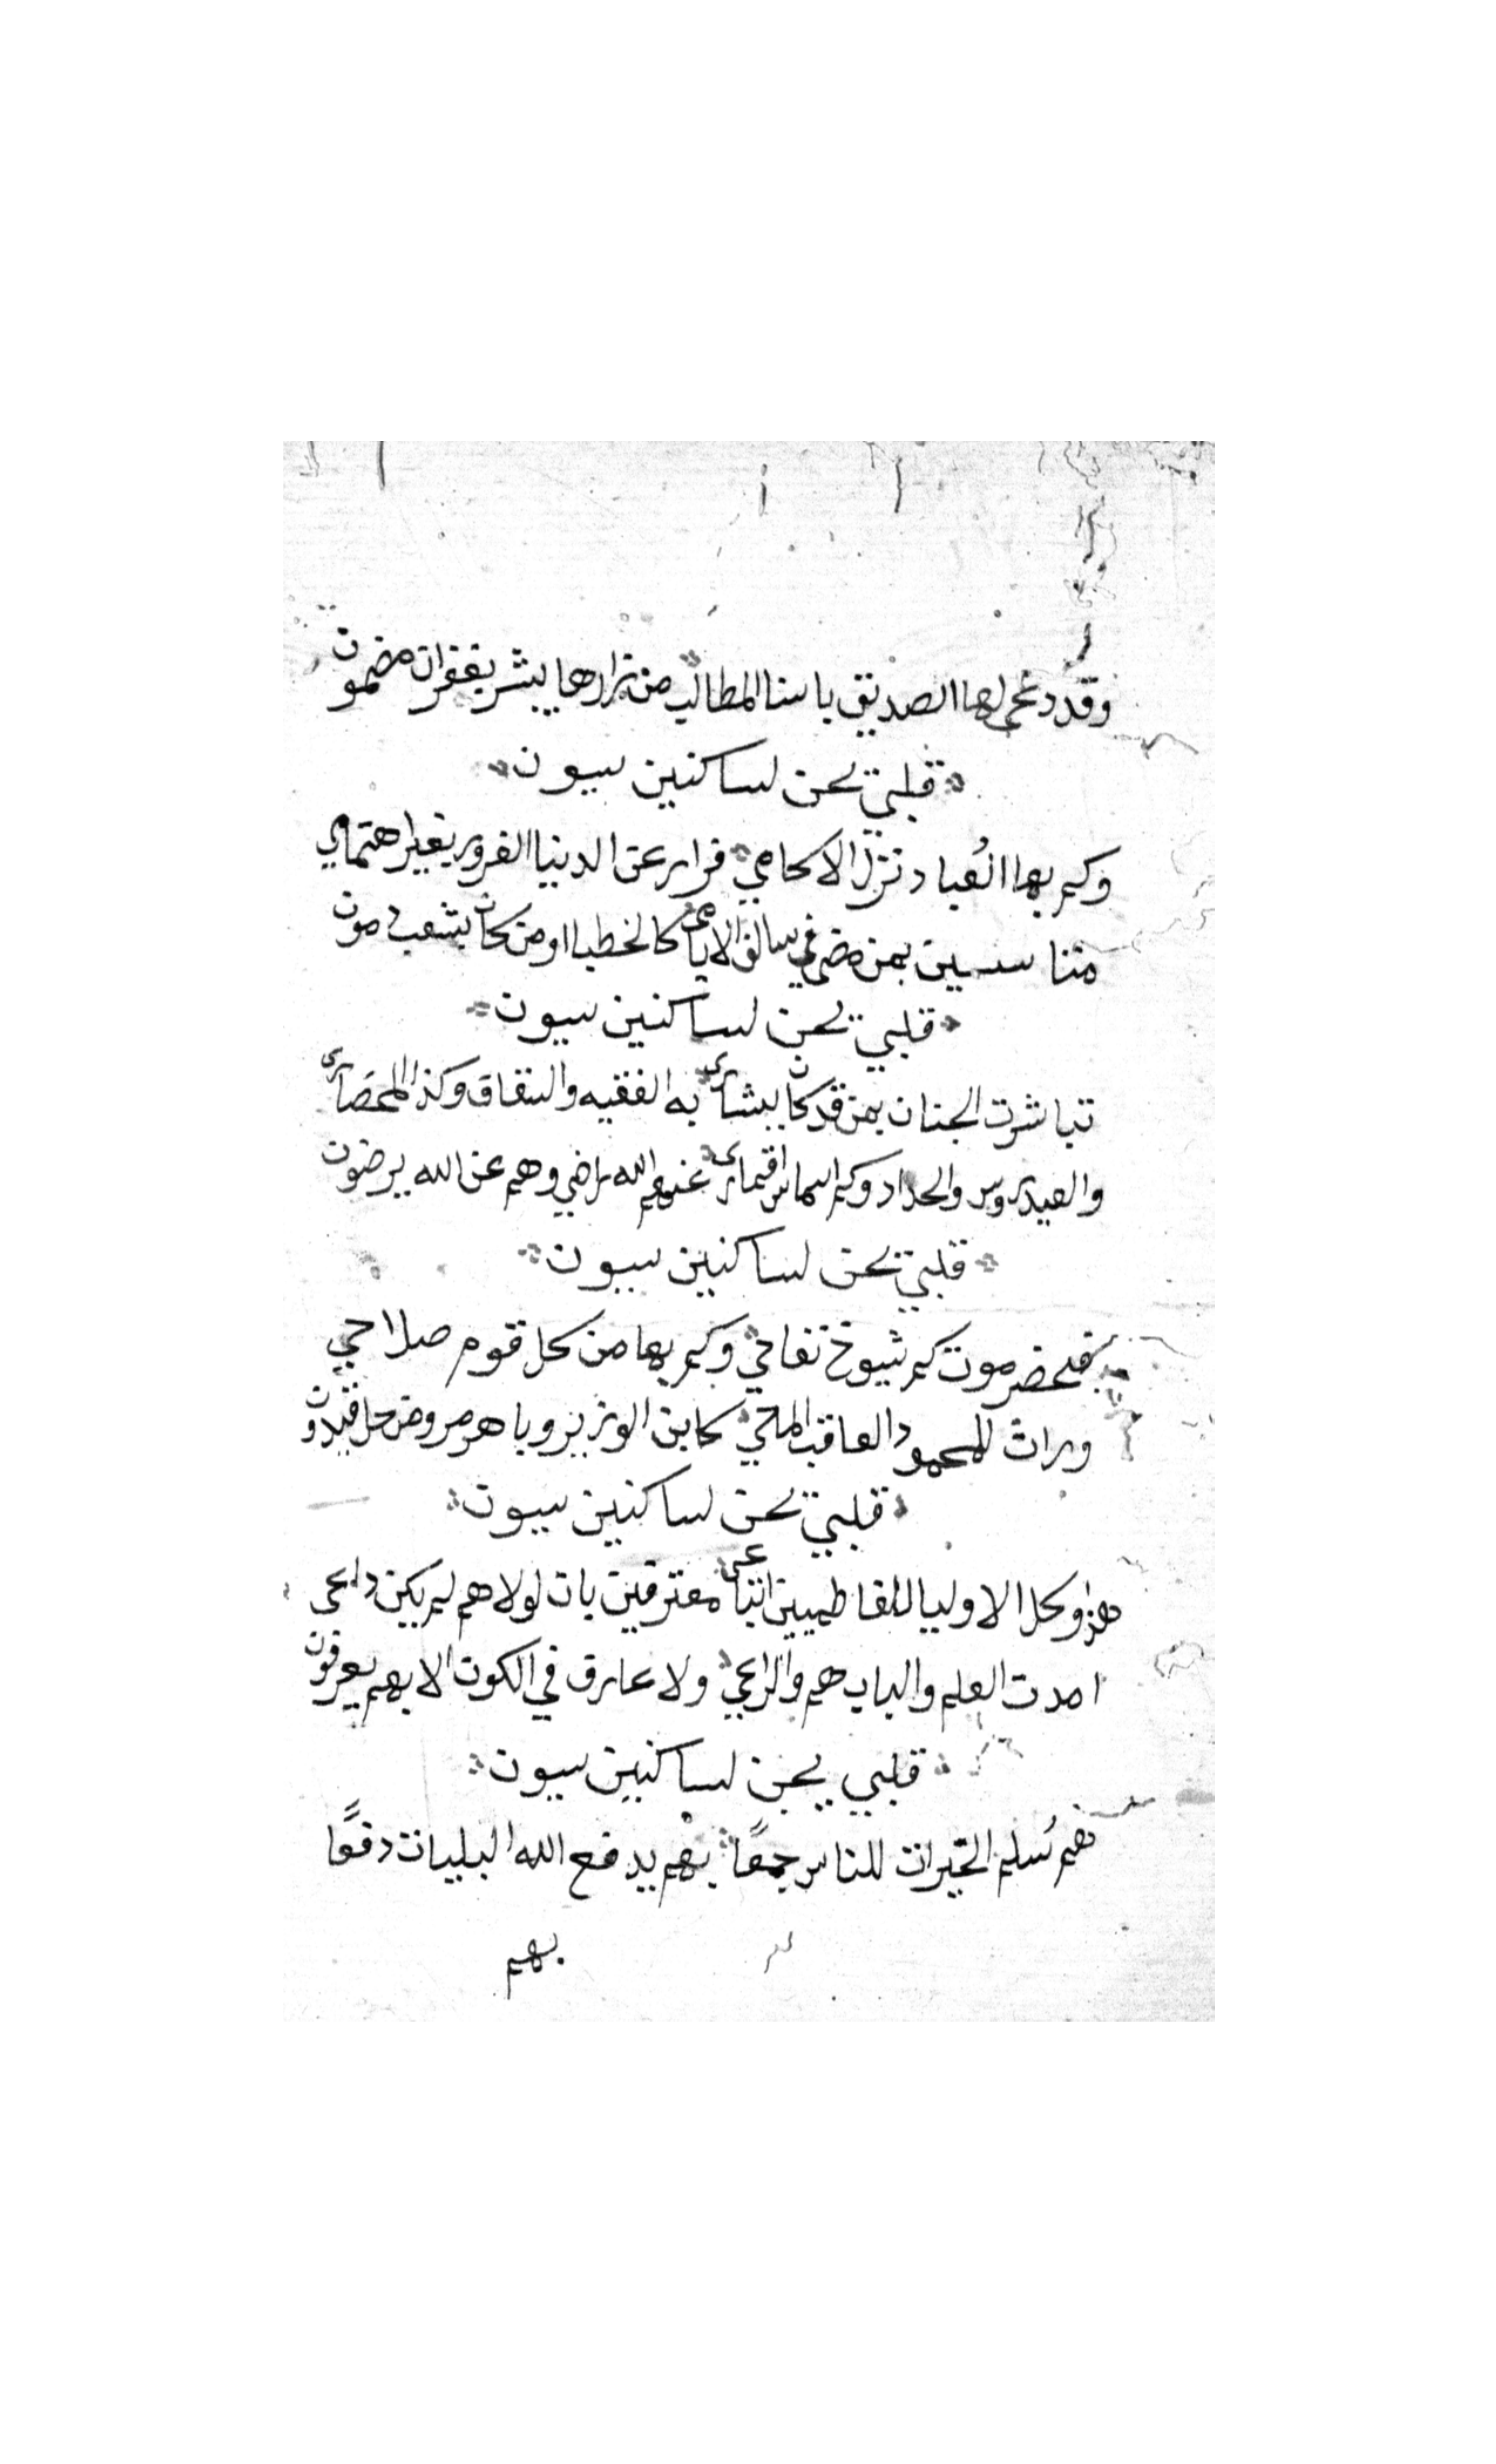 وقد دعى لها الصديق باسنا المطالب من زارها يبشر بغفران مضمون
قلبي يحن لساكنين سيون
وكم بها العباد نزل الاكامي فرار عن الدنيا الغرور بغير اهتمامي
متناسسين بمن مضى في سالف الايامى كالخطبا او من كان بشعب مون
قلبي يحن لساكنين سيون
تباشرت الجنان بمن قد كان ببشارى به الفقيه والسقاف وكذا المحضارى
والعيدروس والحداد وكم اسماس اقمارى عنهم الله راضي وهم عن الله يرضون
قلبي يحن لساكنين سيون
فحضرموت كم شيوخ نفاحي وكم بها من كل قوم صلاحي
وراث للمحمود العاقب الماحي كابن الوزير وباهرمز ومن حل قيدون
قلبي يحن لساكنين سيون
هذا وكل الاوليا للفاطميين اتباعى معترفين بان لولاهم لم يكن داعى
امدت العلم والباب هم والراعي ولا عارف في الكون الا بهم يعرفون
قلبي يحن لساكنين سيون
فهم سُلم الخيرات للناس جمعًا بهم يدفع الله البليات دفعًا
بهم